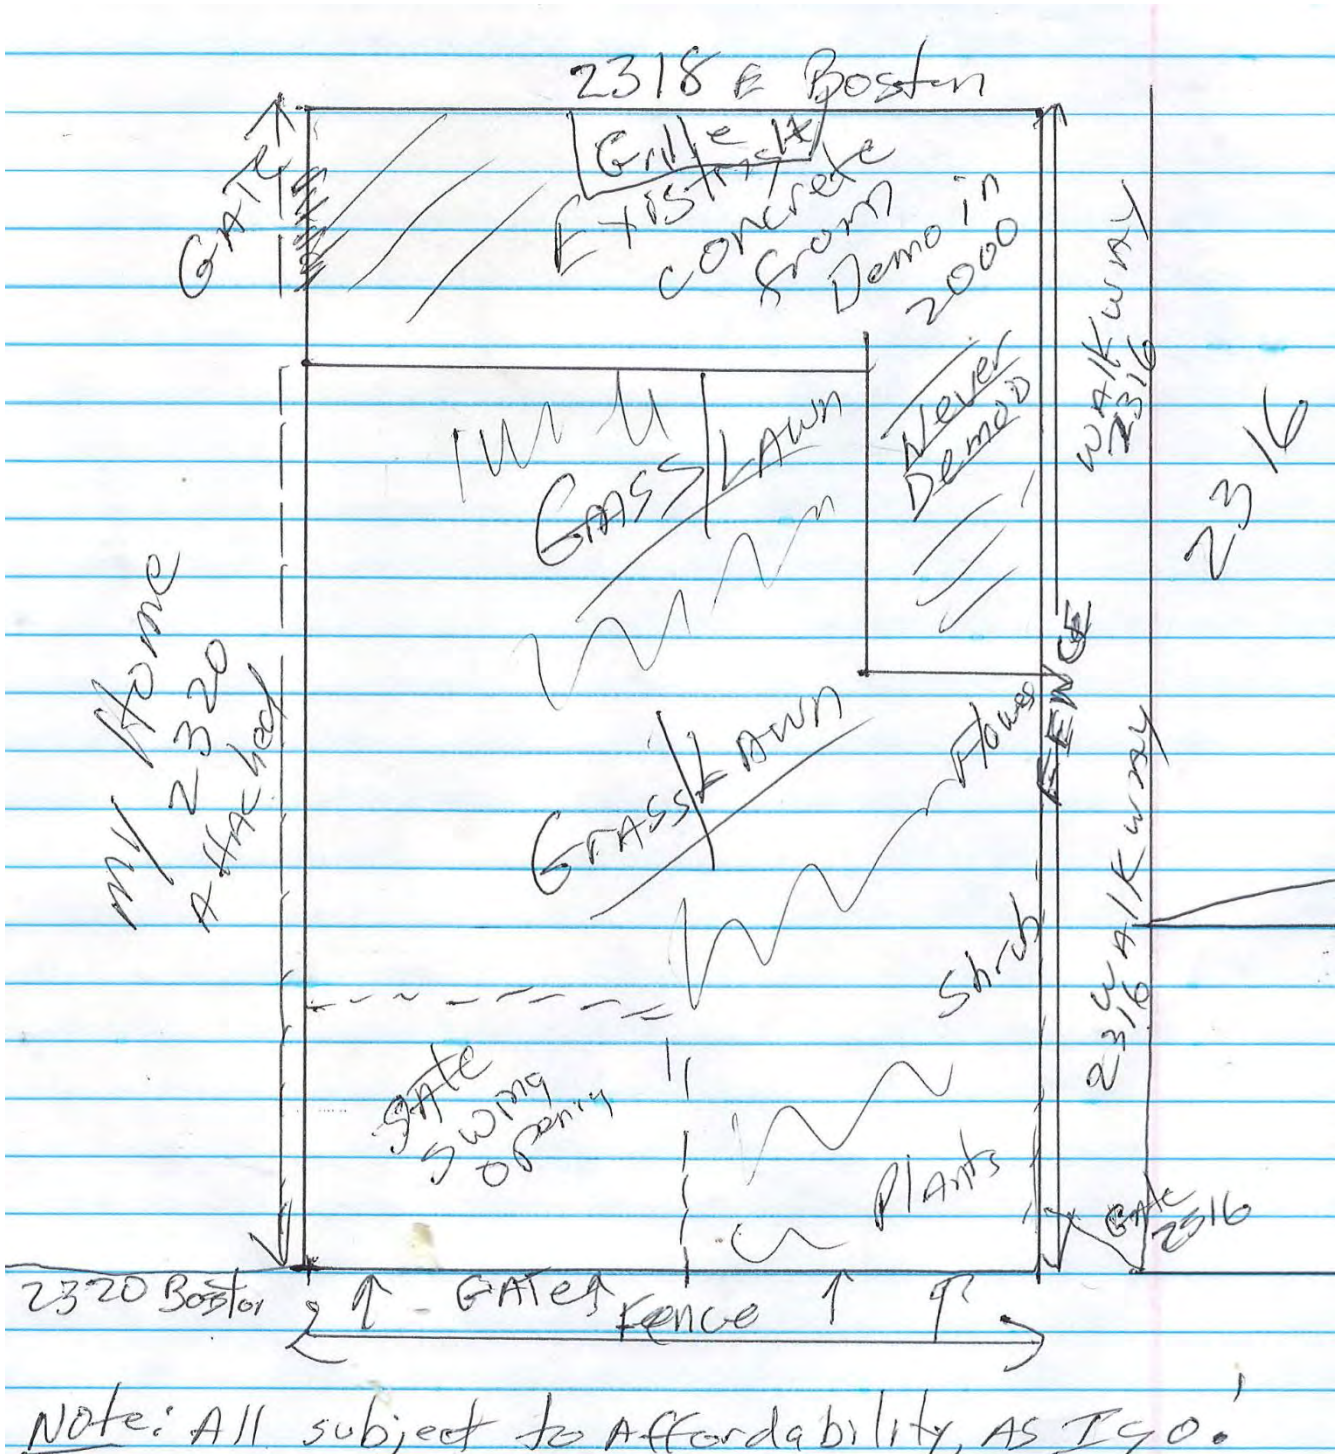 2318 E Boston
GATE
Grille
Existing
concrete
from
Demo in
2000
Never
Demo'd
WAlKWAY
2316
2316
GrASS/LAwn
My Home
2320
AttAched
FENCE
Flower
GrASS/LAwn
Shrub
WAlKWAY
2316
gAte
swing
opening
PlAnts
GAte
2316
2320 Boston
GATE
Fence
Note: All subject to Affordability, AS I go.